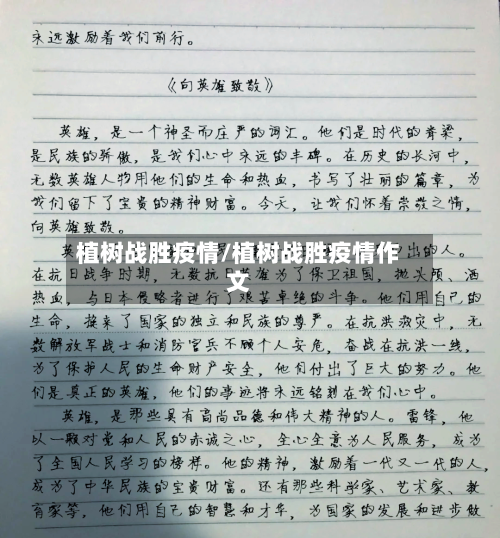 永远激励着我们前行。
《向英雄致敬》
英雄，是一个神圣而庄严的词汇。他们是时代的脊梁，
是民族的骄傲，是我们心中永远的丰碑。在历史的长河中，
无数英雄人物用他们的生命和热血，书写了壮丽的篇章，为
我们留下了宝贵的精神财富。今天，让我们怀着崇敬之情，
向英雄致敬。
英 出的人。
植树战胜疫情/植树战胜疫情作
文
在抗日战争时期，无数抗 英雄为了保卫祖国，抛头颅、洒
热血，与日本侵略者进行了艰苦卓绝的斗争。他们用自己的
生命，换来了国家的独立和民族的尊严。在抗洪救灾中，无
数解放军战士和消防官兵不顾个人安危，奋战在抗洪一线，
为了保护人民的生命财产安全，他们付出了巨大的努力。他
们是真正的英雄，他们的事迹将永远铭刻在我们心中。
英雄，是那些具有高尚品德和伟大精神的人。雷锋，他
以一颗对党和人民的赤诚之心，全心全意为人民服务，成为
了全国人民学习的榜样。他的精神，激励着一代又一代的人，
成为了中华民族的宝贵财富。还有那些科学家、艺术家、教
育家等，他们用自己的智慧和才华，为国家的发展和进步做